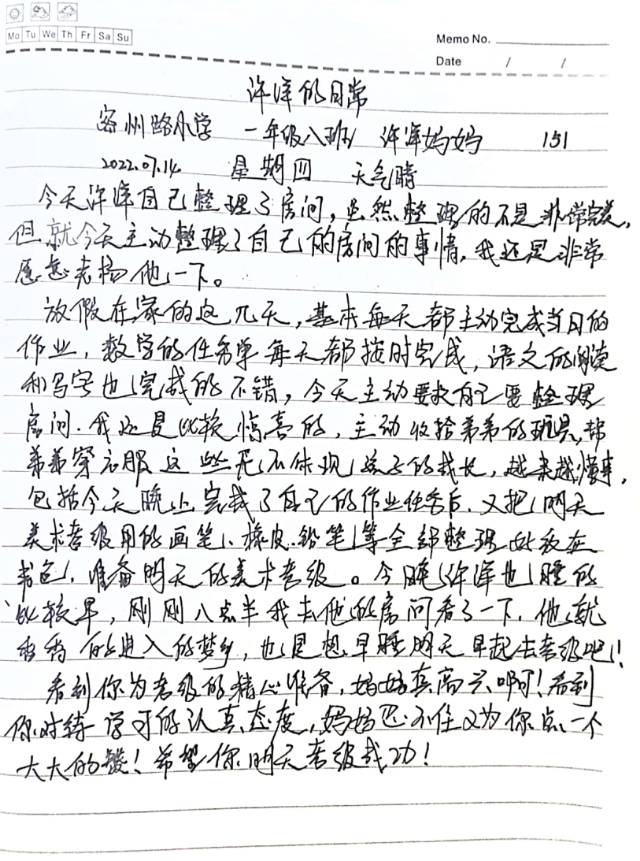 Mo Tu We Th Fr Sa Su
Memo No.
Date / /
许泽的日常
密州路小学 一年级八班 许泽妈妈 151
2022.07.14 星期四 天气晴
今天许泽自己整理了房间,虽然整理的不是非常完美,
但就今天主动整理了自己的房间的事情,我还是非常
愿意表扬他一下。
放假在家的这几天,基本每天都主动完成当日的
作业,数学的任务单每天都按时完成,语文的阅读
和写字也完成的不错,今天主动要求自己要整理
房间.我还是比较惊喜的,主动收拾弟弟的玩具,帮
弟弟穿衣服这些无不体现孩子的成长,越来越懂事,
包括今天晚上完成了自己的作业任务后.又把明天
美术考级用的画笔、橡皮.铅笔等全部整理好放在
书包,准备明天的美术考级。今晚许泽也睡的
比较早,刚刚八点半我去他的房间看了一下.他就
香香的进入的梦乡,也是想早睡明天早起去考级吧!
看到你为考级的精心准备,妈妈真高兴啊!看到
你对待学习的认真态度,妈妈忍不住又为你点一个
大大的赞!希望你明天考级成功!